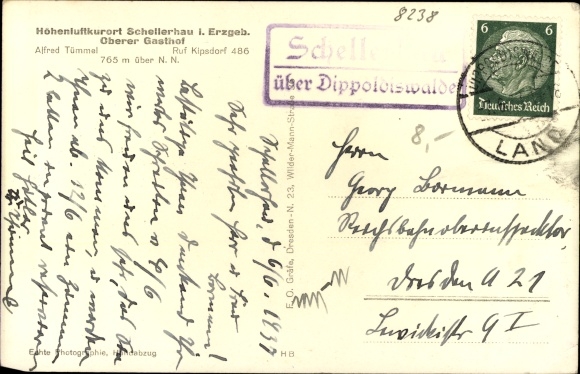 8238
Höhenluftkurort Schellerhau i. Erzgeb.
Oberer Gasthof
Alfred Tümmel Ruf Kipsdorf 486
765 m über N. N.
Schellerhau
über Dippoldiswalde
6 6
Deutsches Reich
LAND
8,-
Schellerhau, d. 6/6. 1937
Sehr geehrter Herr u. Frau
Bormann!
Bestätige Ihnen dankend Ihr
wertes Schreiben v. 5/6
wir freuen uns sehr, das Sie
zu uns kommen, u. werden
Ihnen ab. 12/6 ein Zimmer
2 Betten
Heil Hitler
A. Tümmel
Herrn
Georg Bormann
Reichsbahnoberinspektor
Dresden A 21
I
F. O. Gräfe, Dresden-N. 23, Wilder-Mann-Straße
Echte Photographie, Handabzug
HB